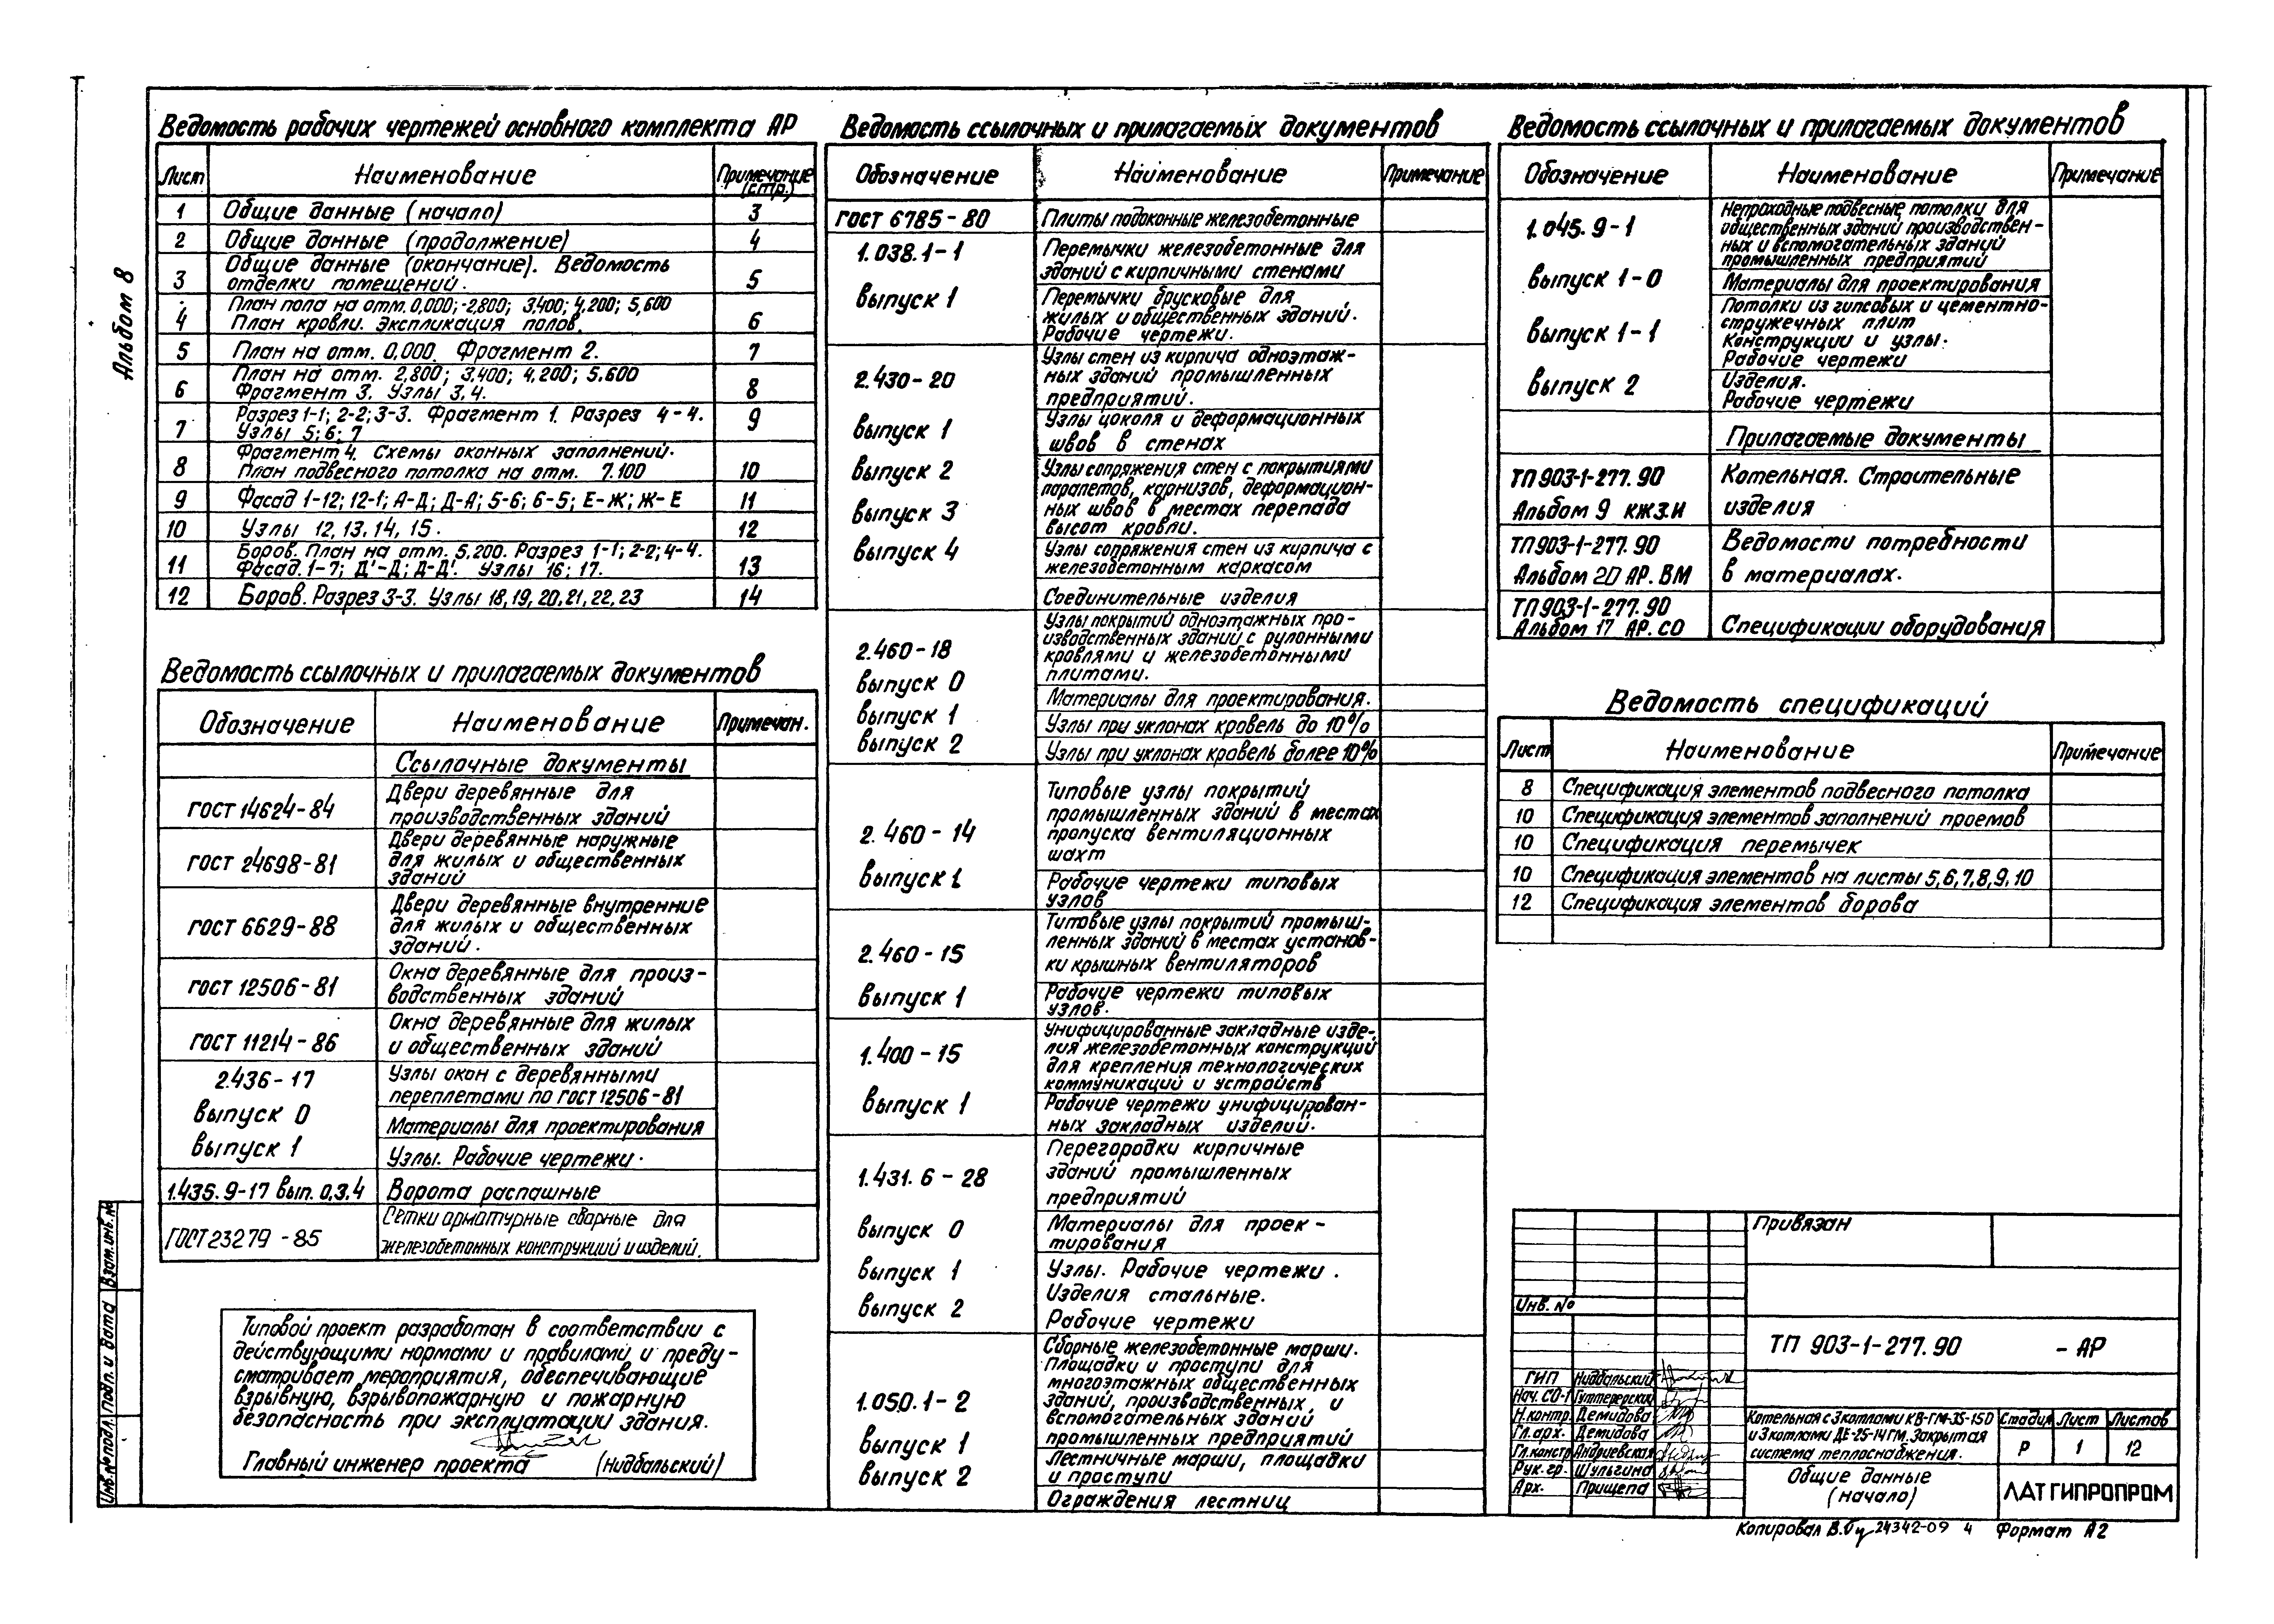 Альбом 8
Ведомость рабочих чертежей основного комплекта АР
Лист Наименование Примечание (стр.)
1 Общие данные (начало) 3
2 Общие данные (продолжение) 4
3 Общие данные (окончание). Ведомость отделки помещений. 5
4 План пола на отм. 0,000; -2,800; 3,400; 4,200; 5,600
План кровли. Экспликация полов. 6
5 План на отм. 0,000. Фрагмент 2. 7
6 План на отм. 2,800; 3,400; 4,200; 5.600
Фрагмент 3. Узлы 3,4. 8
7 Разрез 1-1; 2-2; 3-3. Фрагмент 1. Разрез 4-4.
Узлы 5; 6; 7 9
8 Фрагмент 4. Схемы оконных заполнений.
План подвесного потолка на отм. 7.100 10
9 Фасад 1-12; 12-1; А-Д; Д-А; 5-6; 6-5; Е-Ж; Ж-Е 11
10 Узлы 12, 13, 14, 15. 12
11 Боров. План на отм. 5.200. Разрез 1-1; 2-2; 4-4.
Фасад. 1-7; Д'-Д; Д-Д'. Узлы 16; 17. 13
12 Боров. Разрез 3-3. Узлы 18, 19, 20, 21, 22, 23 14
Ведомость ссылочных и прилагаемых документов
Обозначение Наименование Примечан.
Ссылочные документы
ГОСТ 14624-84 Двери деревянные для
производственных зданий
ГОСТ 24698-81 Двери деревянные наружные
для жилых и общественных
зданий
ГОСТ 6629-88 Двери деревянные внутренние
для жилых и общественных
зданий.
ГОСТ 12506-81 Окна деревянные для произ-
водственных зданий
ГОСТ 11214-86 Окна деревянные для жилых
и общественных зданий
2.436-17 Узлы окон с деревянными
переплетами по ГОСТ 12506-81
выпуск 0 Материалы для проектирования
выпуск 1 Узлы. Рабочие чертежи.
1.435.9-17 вып. 0,3,4 Ворота распашные
ГОСТ 23279-85 Сетки арматурные сварные для
железобетонных конструкций и изделий.
Типовой проект разработан в соответствии с
действующими нормами и правилами и преду-
сматривает мероприятия, обеспечивающие
взрывную, взрывопожарную и пожарную
безопасность при эксплуатации здания.
Главный инженер проекта (Нидбальский)
Ведомость ссылочных и прилагаемых документов
Обозначение Наименование Примечание
ГОСТ 6785-80 Плиты подоконные железобетонные
1.038.1-1 Перемычки железобетонные для
зданий с кирпичными стенами
выпуск 1 Перемычки брусковые для
жилых и общественных зданий.
Рабочие чертежи.
2.430-20 Узлы стен из кирпича одноэтаж-
ных зданий промышленных
предприятий.
выпуск 1 Узлы цоколя и деформационных
швов в стенах
выпуск 2 Узлы сопряжения стен с покрытиями
парапетов, карнизов, деформацион-
выпуск 3 ных швов в местах перепада
высот кровли.
выпуск 4 Узлы сопряжения стен из кирпича с
железобетонным каркасом
Соединительные изделия
2.460-18 Узлы покрытий одноэтажных про-
изводственных зданий с рулонными
кровлями и железобетонными
плитами.
выпуск 0 Материалы для проектирования.
выпуск 1 Узлы при уклонах кровель до 10%
выпуск 2 Узлы при уклонах кровель более 10%
2.460-14 Типовые узлы покрытий
промышленных зданий в местах
пропуска вентиляционных
шахт
выпуск 1 Рабочие чертежи типовых
узлов
2.460-15 Типовые узлы покрытий промыш-
ленных зданий в местах установ-
ки крышных вентиляторов
выпуск 1 Рабочие чертежи типовых
узлов.
1.400-15 Унифицированные закладные изде-
лия железобетонных конструкций
для крепления технологических
коммуникаций и устройств
выпуск 1 Рабочие чертежи унифицирован-
ных закладных изделий.
1.431.6-28 Перегородки кирпичные
зданий промышленных
предприятий
выпуск 0 Материалы для проек-
тирования
выпуск 1 Узлы. Рабочие чертежи.
выпуск 2 Изделия стальные.
Рабочие чертежи
1.050.1-2 Сборные железобетонные марши.
Площадки и проступи для
многоэтажных общественных
зданий, производственных и
вспомогательных зданий
промышленных предприятий
выпуск 1 Лестничные марши, площадки
и проступи
выпуск 2 Ограждения лестниц
Ведомость ссылочных и прилагаемых документов
Обозначение Наименование Примечание
1.045.9-1 Непроходные подвесные потолки для
общественных зданий производствен-
ных и вспомогательных зданий
промышленных предприятий
выпуск 1-0 Материалы для проектирования
выпуск 1-1 Потолки из гипсовых и цементно-
стружечных плит
Конструкции и узлы.
Рабочие чертежи
выпуск 2 Изделия.
Рабочие чертежи
Прилагаемые документы
ТП 903-1-277.90 Котельная. Строительные
Альбом 9 КЖ3.И изделия
ТП 903-1-277.90 Ведомости потребности
Альбом 20 АР. ВМ в материалах.
ТП 903-1-277.90
Альбом 17 АР.СО Спецификации оборудования
Ведомость спецификаций
Лист Наименование Примечание
8 Спецификация элементов подвесного потолка
10 Спецификация элементов заполнений проемов
10 Спецификация перемычек
10 Спецификация элементов на листы 5,6,7,8,9,10
12 Спецификация элементов борова
Привязан
Инв. №
ТП 903-1-277.90 -АР
ГИП Нидбальский
Нач. СО-1
Н.контр. Демидова
Гл.арх. Демидова
Гл.констр. Андриевская
Рук. гр. Шульгина
Арх. Прищепа
Котельная с 3 котлами КВ-ГМ-35-150
и 3 котлами ДЕ-25-14 ГМ. Закрытая
система теплоснабжения.
Стадия Лист Листов
Р 1 12
Общие данные
(начало)
ЛАТГИПРОПРОМ
Копировал 24342-09 4 Формат А2
Взам. инв. №
Подп. и дата
Инв. № подл.